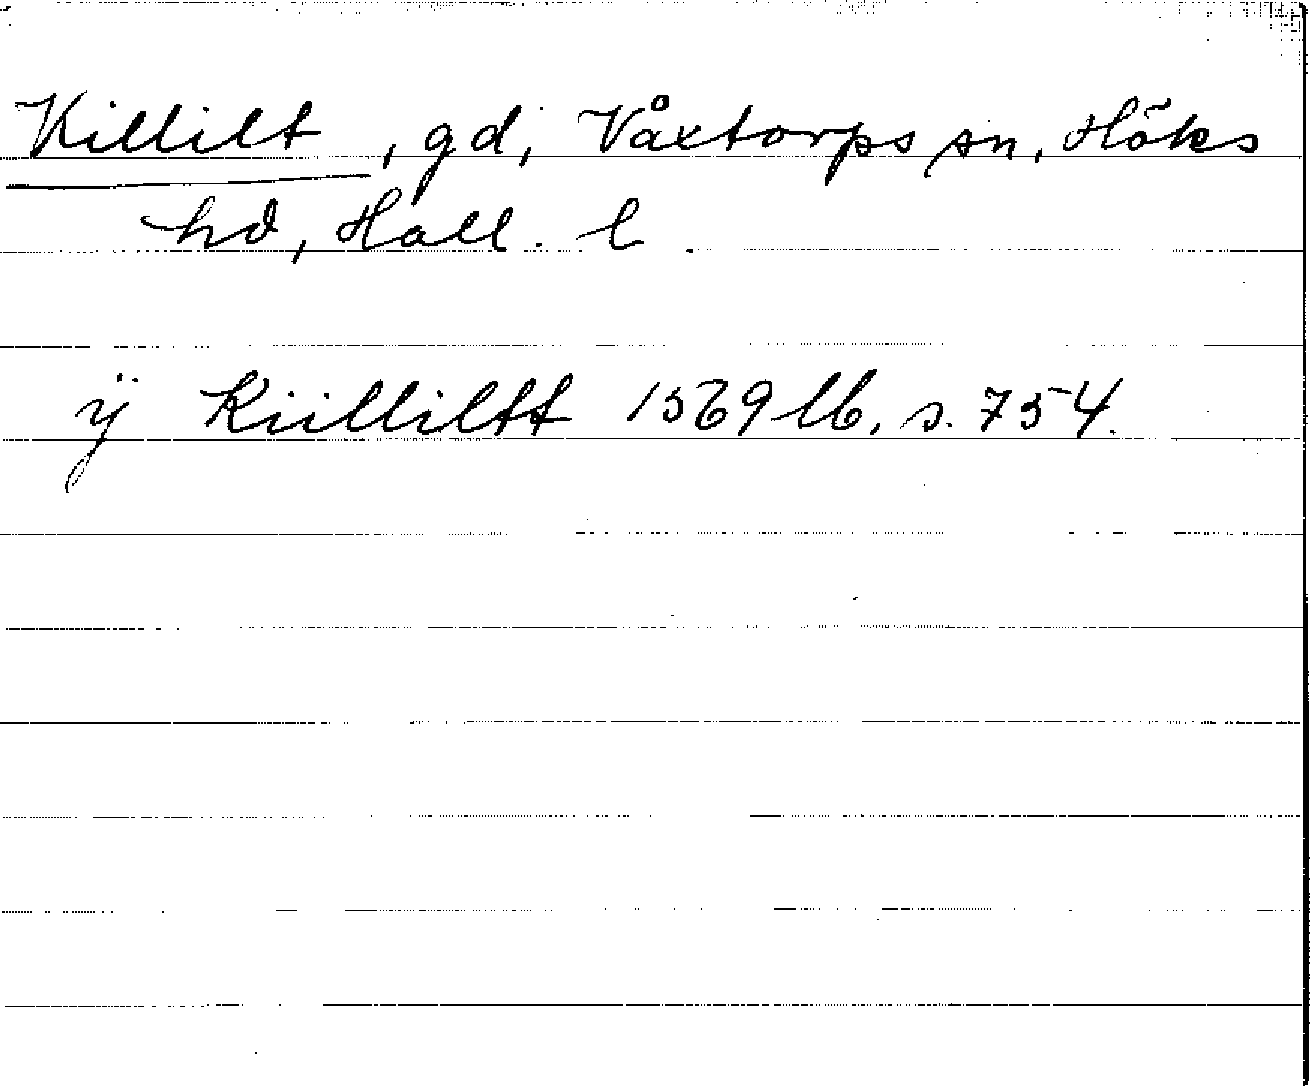 Killilt, gd, Våxtorps sn, Höks
hd, Hall. l.
ÿ Kiilliltt 1569 lb, s. 754.